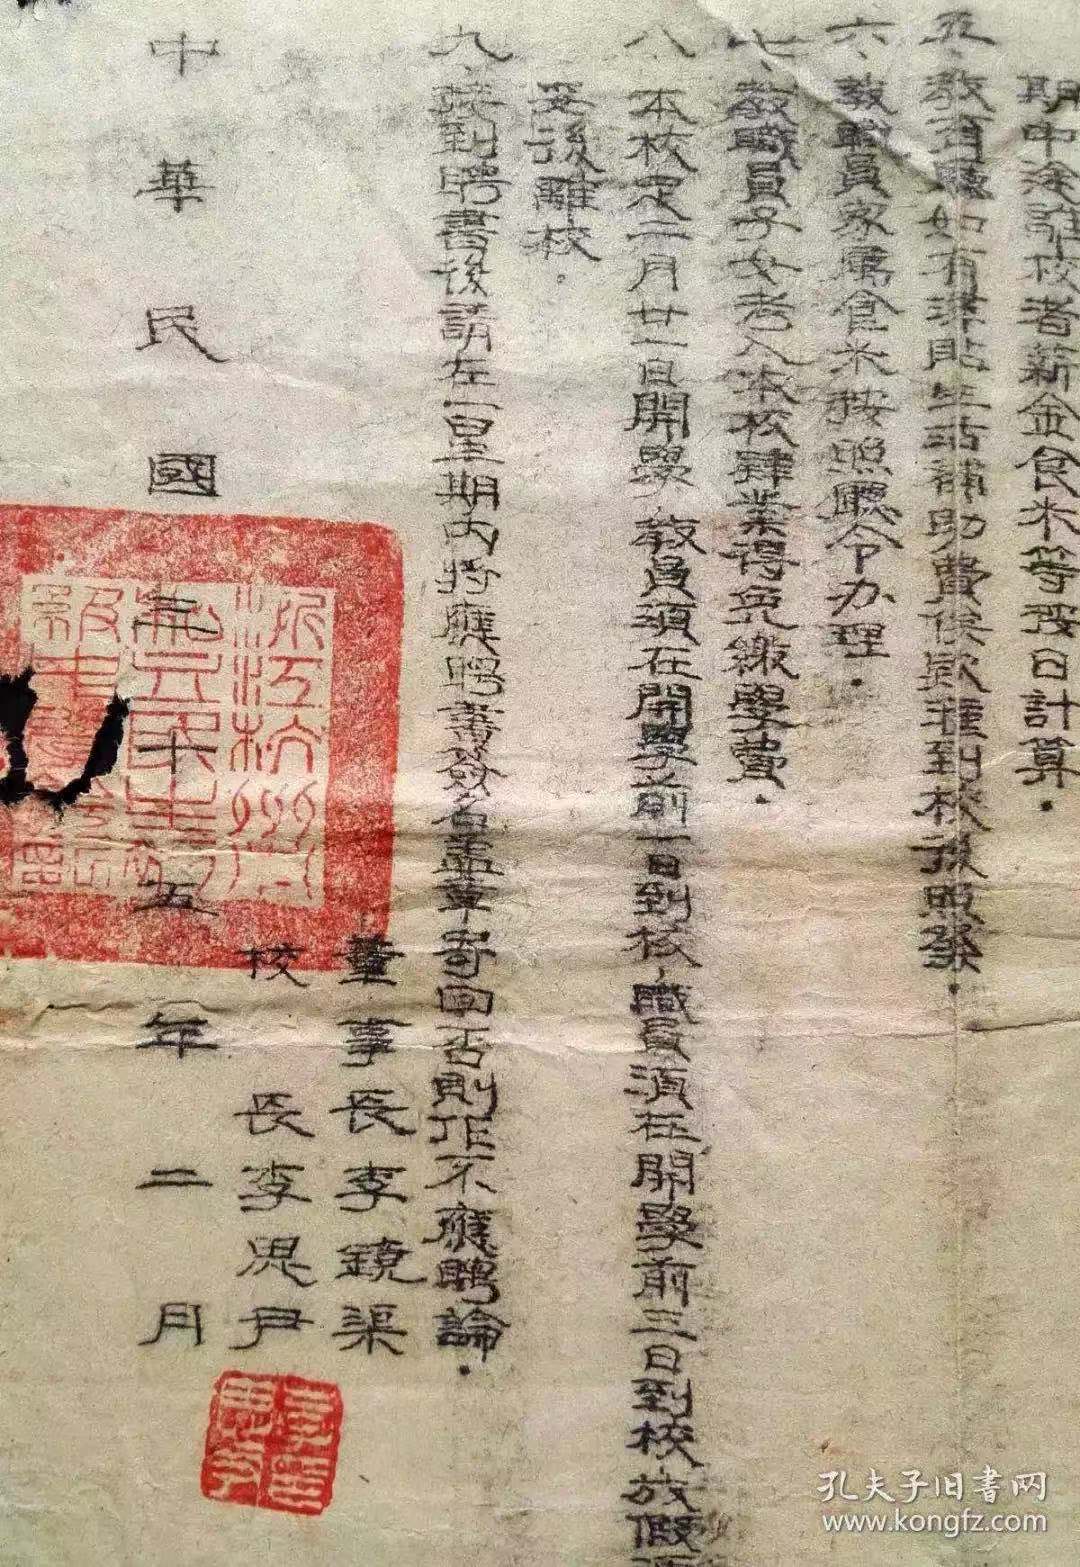 期中途離校者薪金食米等按日計算．
五、教育廳如有津貼生活補助費俟欵匯到校後照發．
六、教職員家屬食米按照廳令办理．
七、教職員子女考入本校肄業得免繳學費．
八、本校定二月廿一日開學，教員須在開學前一日到校，職員須在開學前三日到校放假
後離校．
九、接到聘書後請在一星期內將應聘書簽名盖章寄回否則作不應聘論．
董事長李鏡渠
校長李思尹
中華民國三十五年二月
浙江杭州
孔夫子旧書网
www.kongfz.com